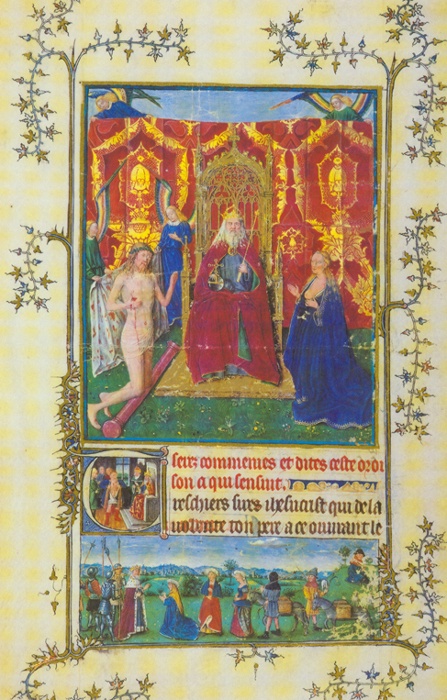 seirs commenies et dites ceste oroi
son a qui sensuit.
reschiers sires ihesucrist qui de la
uolente ton pere a ce ouurant le